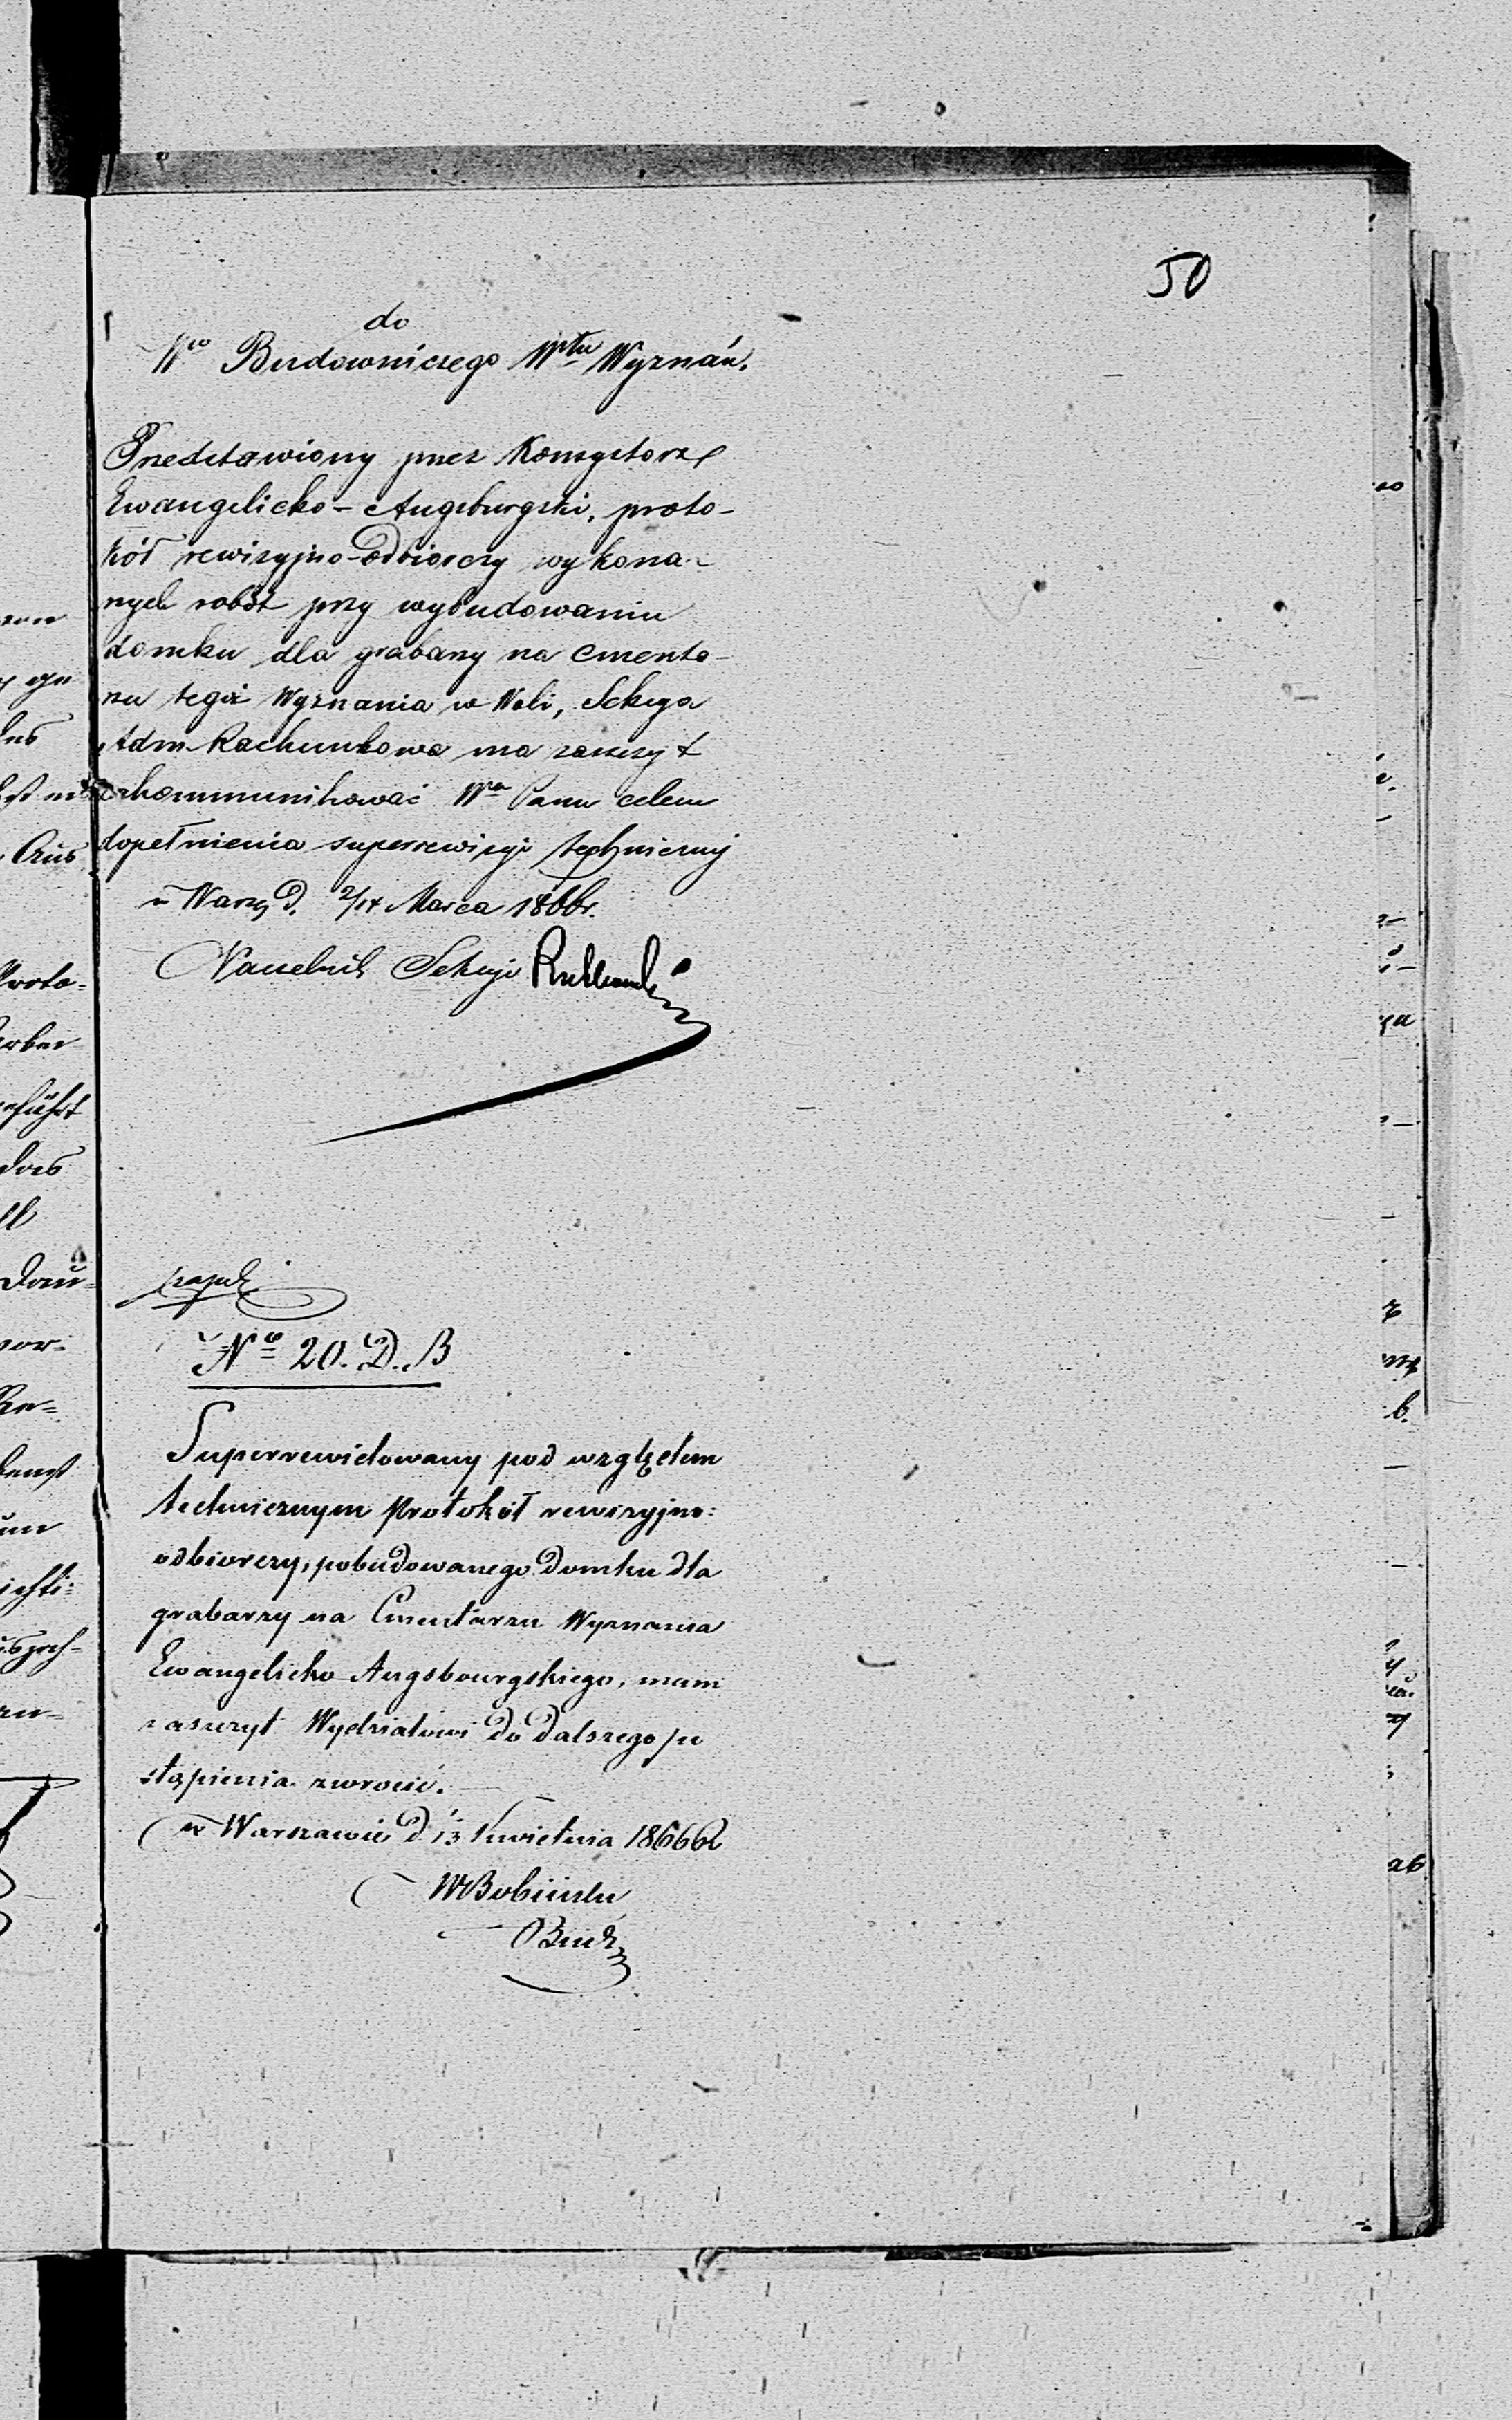 50
do
Wo Budowniczego Włu Wyznań.
Przedstawiony przez Konsystorz
Ewangelicko-Augsburgski, proto-
kół rewizyjno-odbiorczy wykona-
nych robót przy wybudowaniu
domku dla grabarzy na Cmenta-
rzu tegoż Wyznania w Woli, Sekcya
Adm-Rachunkowa ma zaszczyt
zkommunikować Wu Panu celem
dopełnienia superrewizyi techniczny
w Warsz d. 2/14 Marca 1866r.
Naczelnik Sekcyi
No 20. D. B
Superrewidowany pod względem
technicznym Protokół rewizyjno:
odbiorczy, pobudowanego domku dla
grabarzy na Cmentarzu Wyznania
Ewangelicko-Augsbourgskiego, mam
zaszczyt Wydziałowi do dalszego po
stąpienia zwrocić.
w Warszawie d 1/13 Kwietnia 1866